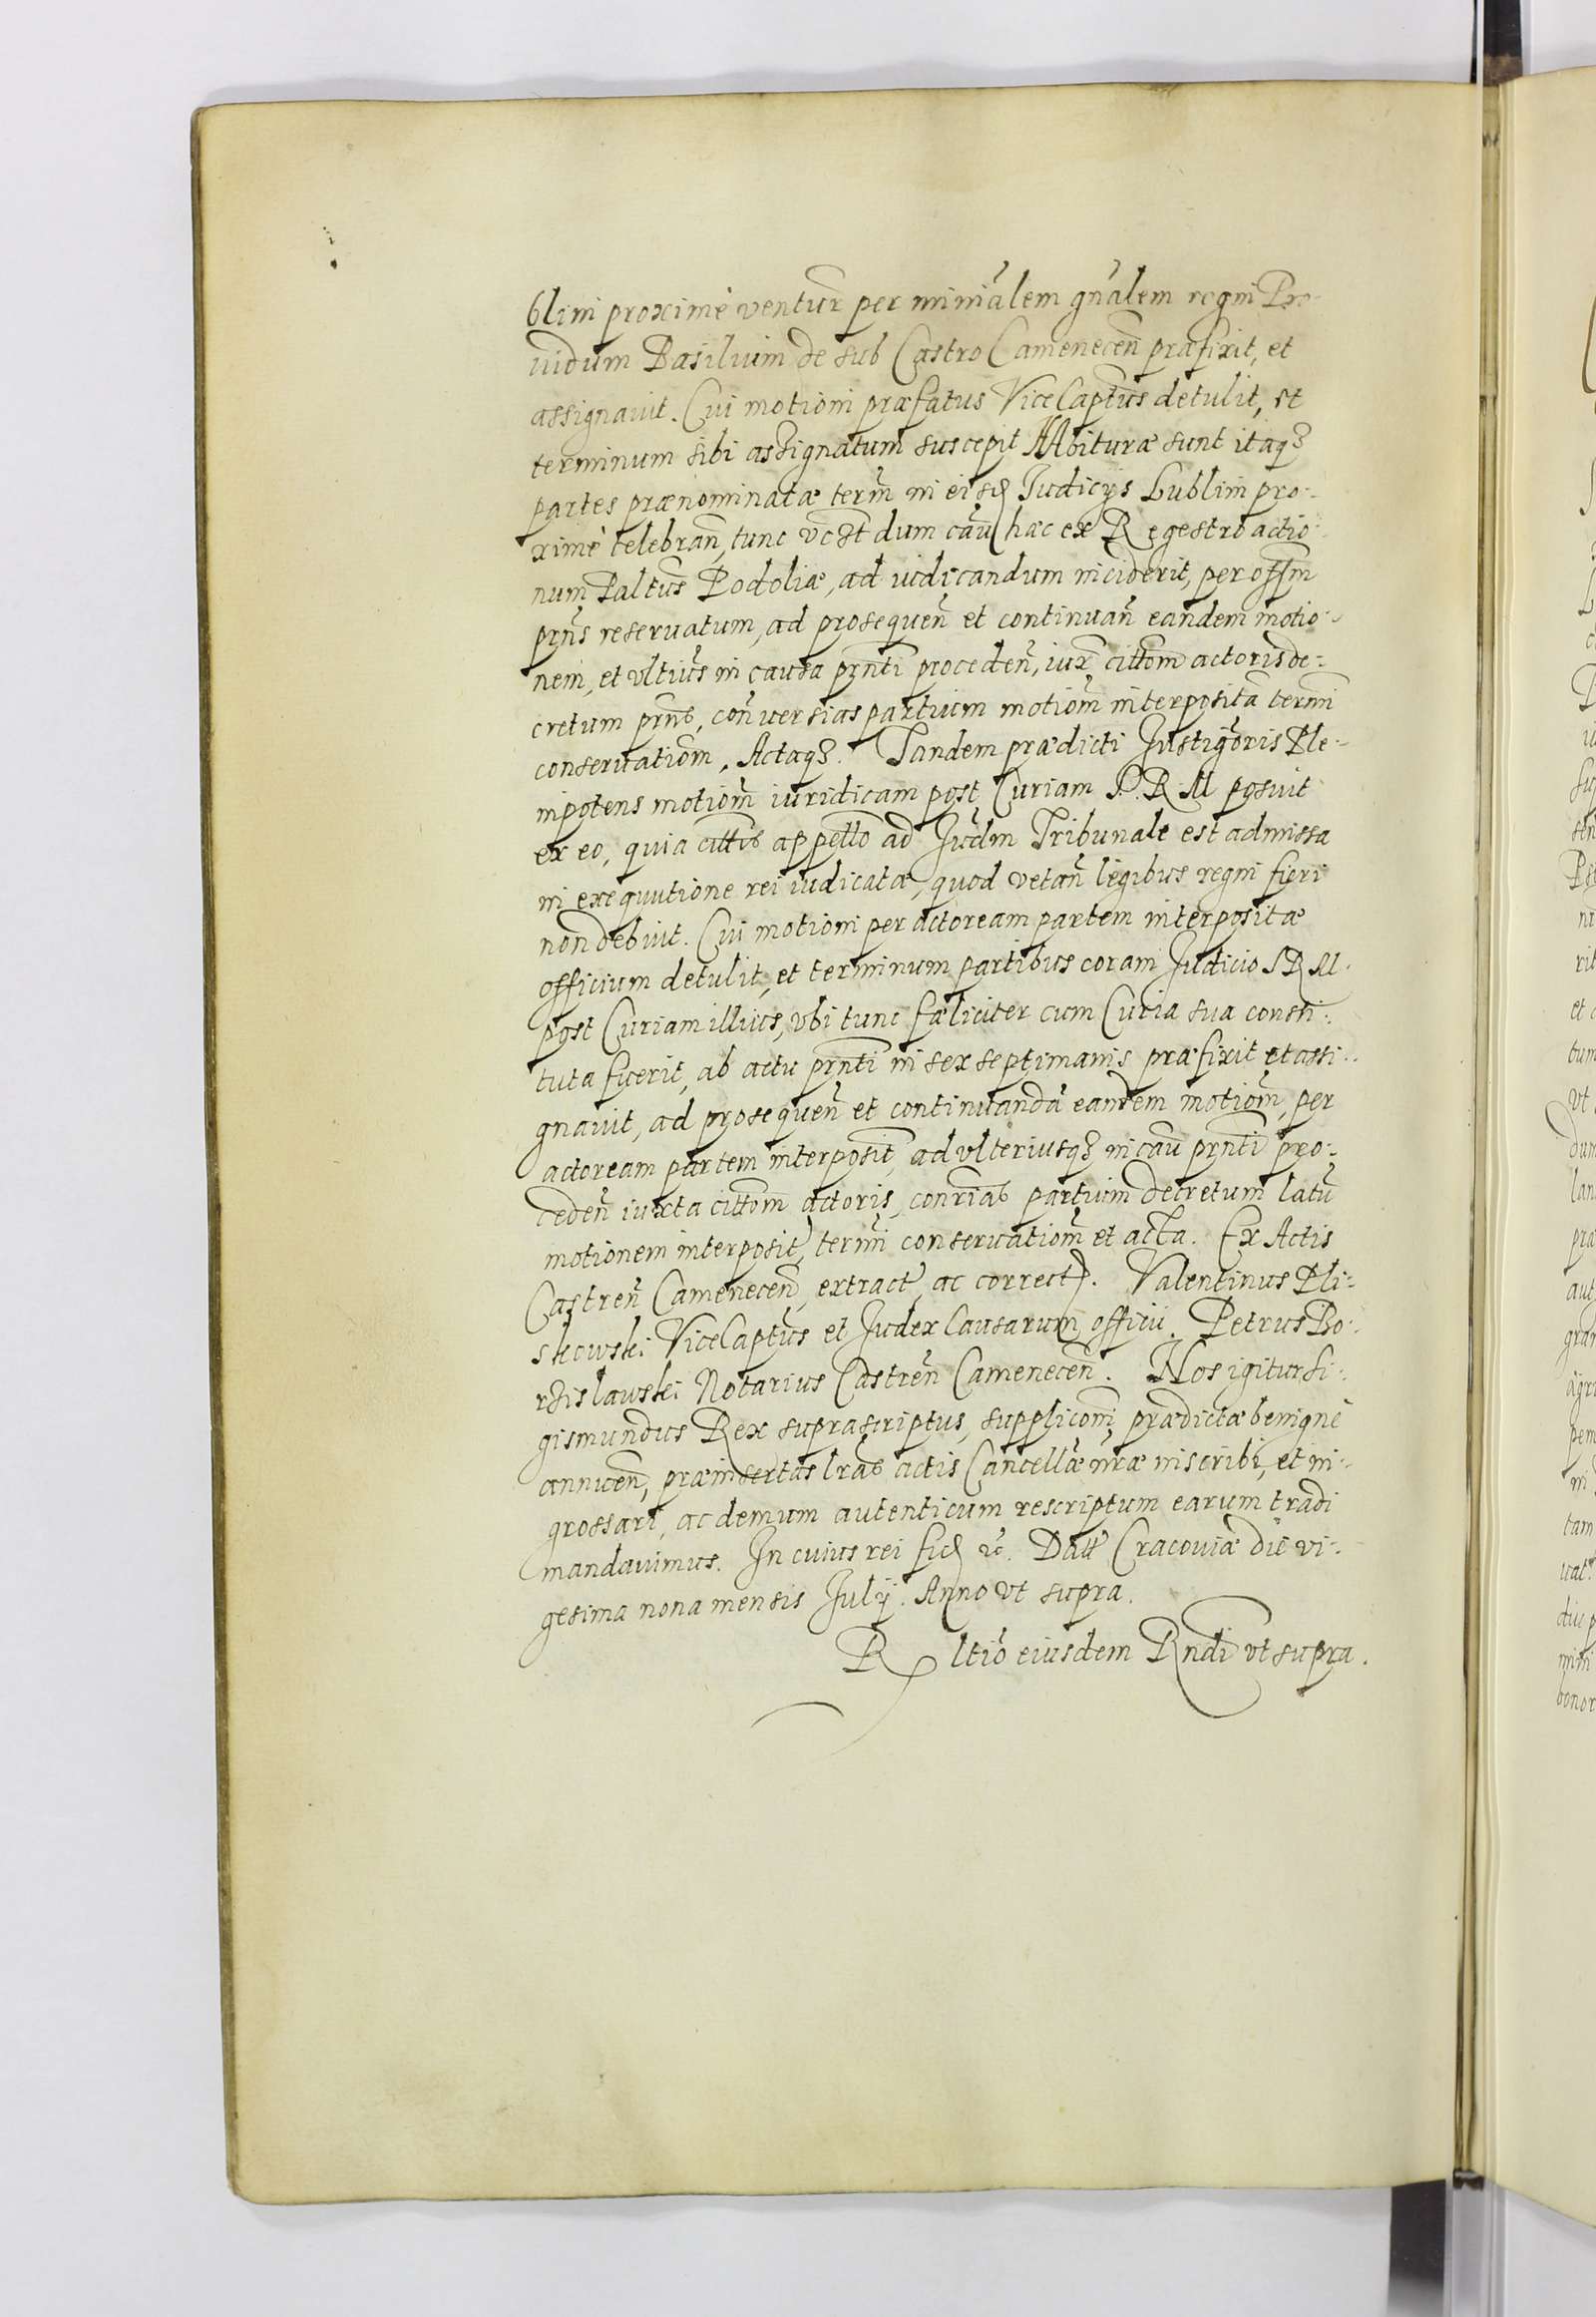 blini proximè ventur̃ per miniãlem gñalem regni Pro-
uidum Basilium de sub Castro Cameneceñ præfixit, et
assignauit. Cui motioni præfatus ViceCaptũs detulit, et
terminum sibi assignatum suscepit Abituræ sunt itaq3
partes prænominatæ term̃ in eisd Iudicijs Lublini pro-
ximè celebrañ, tunc dum caũ hæc ex Regestro actio-
num Paltũs Podoliæ, ad iudicandum inciderit, per offm̃
prñs reseruatum, ad prosequeñ et continuañ eandem motio-
nem, et vltiũs in causa prñti procedeñ, iux̃ cittom̃ actoris de-
cretum prñs, coñuersias partium motiom̃ interpositã term̃i
conseruatiom̃, Actaq3. Tandem prædicti Instigõris Ple-
nipotens motiom̃ iuridicam post Curiam S. R. M posuit
ex eo, quia cittis appelło ad Iudm̃ Tribunale est admissa
in exequutione rei iudicatæ, quod vetañ legibus regni fieri
non debuit. Cui motioni per actoream partem interpositæ
officium detulit, et terminum partibus coram Iudicio S R M.
post Curiam illius, vbi tunc fæliciter cum Curia sua consti-
tuta fuerit, ab actu prñti in sex septimanis præfixit et assi-
gnauit, ad prosequeñ et continuandã eandem motiom̃, per
actoream partem interposit̃, ad vlteriusq3 in caũ prñti pro-
cedeñ iuxta cittom̃ actoris, conr̃ias partium decretum latũ
motionem interposit̃, term̃i conseruatiom̃ et acta. Ex Actis
Castreñ Cameneceñ, extract̃ ac correct̃. Valentinus Pli-
skowski ViceCaptũs et Iudex Causarum officii. Petrus Bo-
rzislawski Notarius Castreñ Cameneceñ. Nos igitur Si-
gismundus Rex suprascriptus, supplicom̃i prædictæ benignè
annueñ, præinsertas lr̃as actis Cancellæ nr̃æ inscribi, et in-
grossari, ac demum autenticum rescriptum earum tradi
mandauimus. In cuius rei fid ec̃. Datt̃ Cracouiæ die vi-
gesima nona mensis Iulij. Anno vt supra.
Rltiõ eiusdem Rndi vt supra.